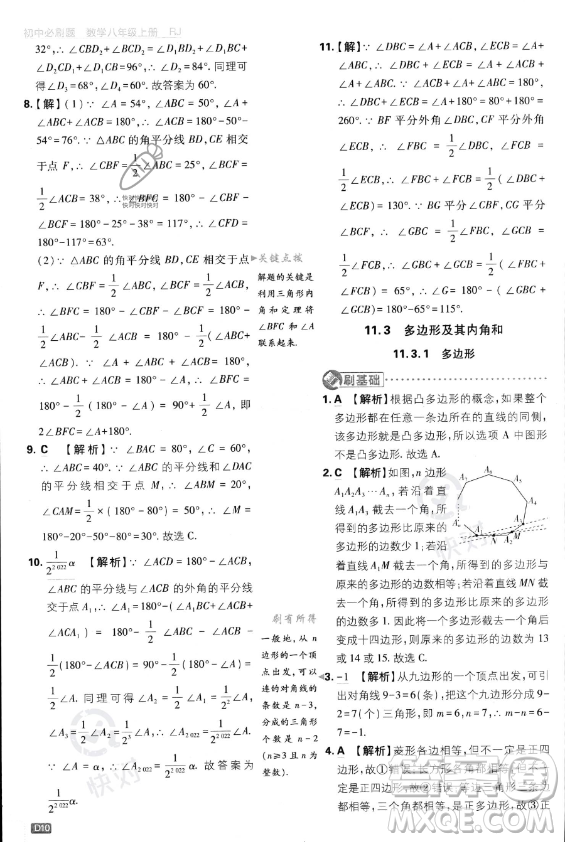 初中必刷题 数学八年级上册 RJ
32°,∴ ∠CBD₂+∠BCD₂=52°+60°=
112°,∴ ∠BD₂C=68°,∴ ∠E=60°.同理可
得∠D=68°,∠F=52°.故答案为60°.
8.【解】(1)∵ ∠A=54°,∠ABC=50°,∠A
+∠ABC+∠ACB=180°,∴ ∠ACB=180°-50°-
54°=76°.∵ △ABC的角平分线BD,CE相交
于点F,∴ ∠CBF=1/2∠ABC=25°,∠BCF=
1/2∠ACB=38°,∴ ∠BFC=180°-∠CBF-
∠BCF=180°-25°-38°=117°,∴ ∠CFD=
180°-117°=63°.
(2)∵ △ABC的角平分线BD,CE相交于点
F,∴ ∠CBF=1/2∠ABC,∠BCF=
1/2∠ACB,∴ ∠BFC=180°-∠CBF-∠BCF=
180°-1/2∠ABC-1/2∠ACB=180°-
1/2(∠ABC+∠ACB)=180°-1/2(180°-
∠A)=180°-90°+1/2∠A=90°+1/2∠A,即
2∠BFC=∠A+180°.
9. C 【解析】∵ ∠BAC=80°,∠ABC=60°,
∴ ∠ACB=40°.∵ ∠BAC的平分线和∠DAC
的平分线相交于点M,∴ ∠ABM=20°,
∠CAM=1/2×(180°-80°)=50°,∴ ∠M=
180°-20°-50°-80°=30°.故选C.
10. 1/2²⁰²²α 【解析】∵ ∠ACD=180°-∠ACB,
∠ABC的平分线与∠ACB的外角的平分线
交于点A₁,∴ ∠A₁=180°-1/2∠ABC-
∠ACA₁-∠ACB=180°-1/2∠ABC-
1/2(180°-∠ACB)-∠ACB=1/2∠A=
1/2α.同理可得∠A₂=1/2∠A₁=1/2²∠A,
∠A₃=1/2∠A₂=1/2³∠A,…,∴ ∠A₂₀₂₂=1/2²⁰²²∠A.
∵ ∠A=α,∴ ∠A₂₀₂₂=1/2²⁰²²α.故答案为
1/2²⁰²²α.
D10
关键点拨
解题的关键是
利用三角形内
角和定理将
∠BFC与∠A
联系起来.
刷有所得
一般地,从n
边形的一个顶
点出发,可以
连的对角线的
条数是n-3,
分成的三角形
个数为n-2
(n≥3且n为
整数).
11.【解】∵ ∠DBC=∠A+∠ACB,∠ECB=
∠A+∠ABC,∴ ∠DBC+∠ECB=∠A+
∠ACB+∠A+∠ABC=∠A+180°=80°+180°=
260°.∵ BF平分∠DBC,CF平分∠ECB,
∴ ∠FBC=1/2∠DBC,∠FCB=
1/2∠ECB,∴ ∠FBC+∠FCB=1/2(∠DBC+
∠ECB)=130°,∴ ∠F=180°-(∠FBC+
∠FCB)=50°.∵ BG平分∠CBF,CG平分
∠BCF,∴ ∠GBC=1/2∠FBC,∠GCB=
1/2∠FCB,∴ ∠GBC+∠GCB=1/2(∠FBC+
∠FCB)=65°,∴ ∠G=180°-(∠GBC+
∠GCB)=180°-65°=115°.
11.3 多边形及其内角和
11.3.1 多边形
刷基础
1. A 【解析】根据凸多边形的概念,如果
多边形都在任意一条边所在的直线的同侧,
该多边形就是凸多边形,所以选项A中图形
不是凸多边形.故选A.
2. C 【解析】如图,n边形
A₁A₂A₃…Aₙ,若沿着直线
A₁A₃截去一个角,所得到的
多边形比原来的多边形的
边数少1;若沿着直线A₁M
截去一个角,所得到的多
边形与原来的多边形的边数相等;若沿着直线MN
截去一个角,所得到的多边形比原来的多边形
的边数多1.因此将一个多边形截去一个角后,
变成十四边形,则原来的多边形的边数为13
或14或15.故选C.
3. -1 【解析】从九边形的一个顶点出发,可引
对角线9-3=6(条),把这个九边形分成9-
2=7(个)三角形,即m=6,n=7,∴ m-n=
6-7=-1.
4. A 【解析】菱形各边相等,但不一定是正四
边形,故①错误;长方形各个角相等,但不一
定是正四边形,故②错误;正多边形的各边
都相等,各个角也都相等,故③正